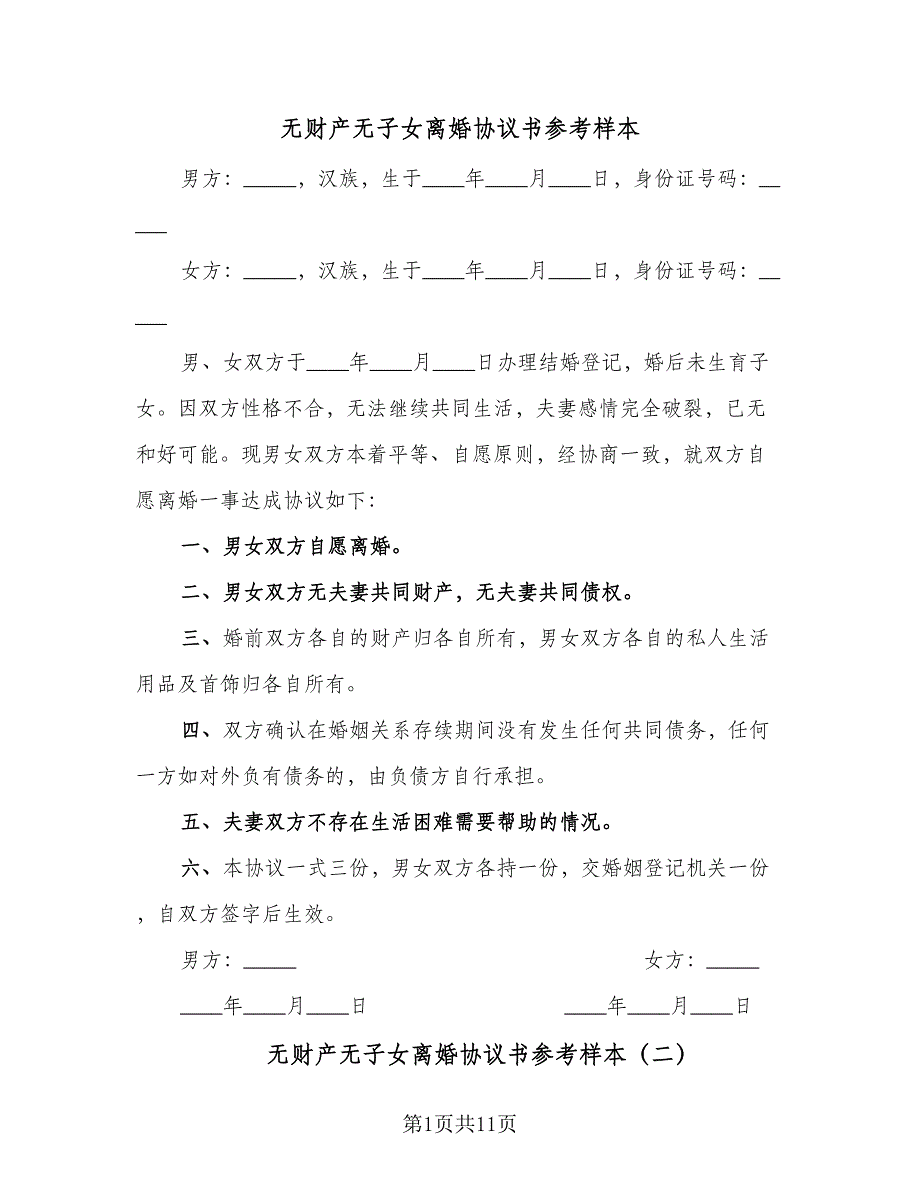 无财产无子女离婚协议书参考样本
男方：_____，汉族，生于____年____月____日，身份证号码：__
___
女方：_____，汉族，生于____年____月____日，身份证号码：__
___
男、女双方于____年____月____日办理结婚登记，婚后未生育子
女。因双方性格不合，无法继续共同生活，夫妻感情完全破裂，已无
和好可能。现男女双方本着平等、自愿原则，经协商一致，就双方自
愿离婚一事达成协议如下：
一、男女双方自愿离婚。
二、男女双方无夫妻共同财产，无夫妻共同债权。
三、婚前双方各自的财产归各自所有，男女双方各自的私人生活
用品及首饰归各自所有。
四、双方确认在婚姻关系存续期间没有发生任何共同债务，任何
一方如对外负有债务的，由负债方自行承担。
五、夫妻双方不存在生活困难需要帮助的情况。
六、本协议一式三份，男女双方各持一份，交婚姻登记机关一份
，自双方签字后生效。
男方：_____ 女方：_____
____年____月____日 ____年____月____日
无财产无子女离婚协议书参考样本（二）
第1页共11页